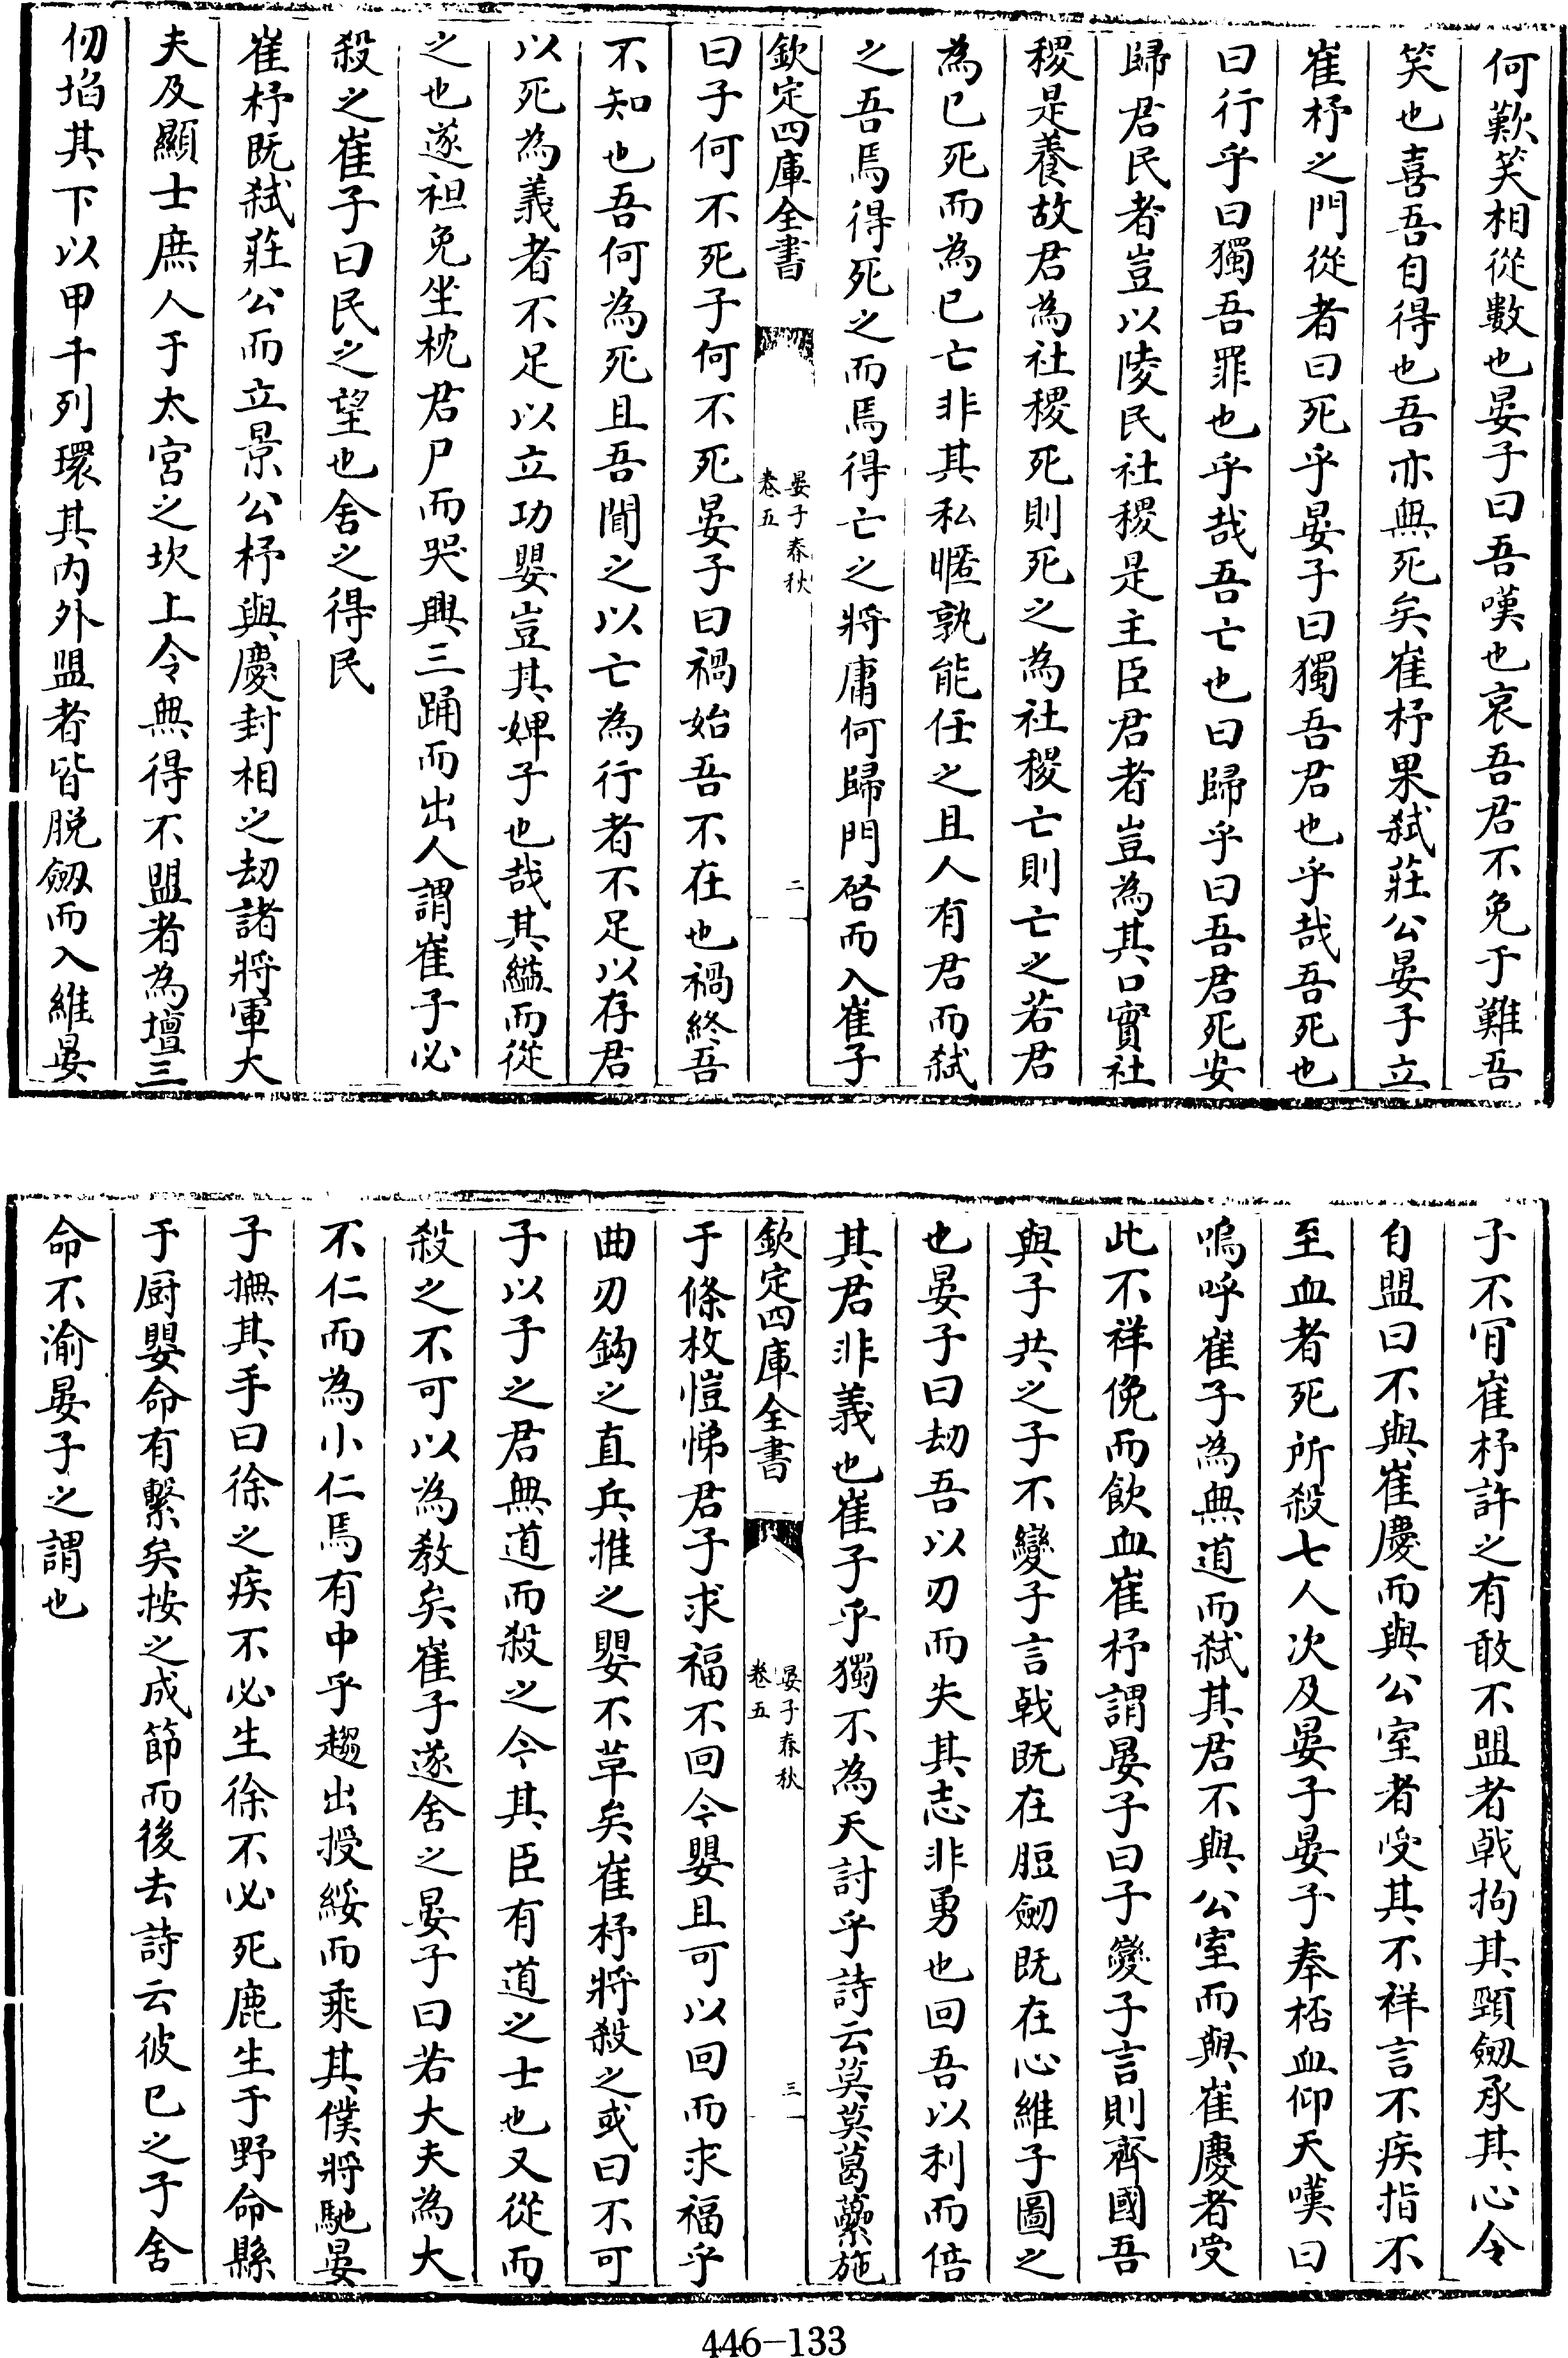 何歎笑相從數也晏子曰吾嘆也哀吾君不免于難吾
笑也喜吾自得也吾亦無死矣崔杼果弑莊公晏子立
崔杼之門從者曰死乎晏子曰獨吾君也乎哉吾死也
曰行乎曰獨吾罪也乎哉吾亡也曰歸乎曰吾君死安
歸君民者豈以陵民社稷是主臣君者豈為其口實社
稷是養故君為社稷死則死之為社稷亡則亡之若君
為已死而為已亡非其私暱孰能任之且人有君而弑
之吾焉得死之而焉得亡之將庸何歸門啓而入崔子
欽定四庫全書
晏子春秋
卷五
二
曰子何不死子何不死晏子曰禍始吾不在也禍終吾
不知也吾何為死且吾聞之以亡為行者不足以存君
以死為義者不足以立功嬰豈其婢子也哉其縊而從
之也遂袒免坐枕君尸而哭興三踊而出人謂崔子必
殺之崔子曰民之望也舍之得民
崔杼既弑莊公而立景公杼與慶封相之劫諸將軍大
夫及顯士庶人于太宮之坎上令無得不盟者為壇三
仞埳其下以甲千列環其内外盟者皆脱劔而入維晏
子不肎崔杼許之有敢不盟者戟拘其頸劔承其心令
自盟曰不與崔慶而與公室者受其不祥言不疾指不
至血者死所殺七人次及晏子晏子奉桮血仰天嘆曰
嗚呼崔子為無道而弑其君不與公室而與崔慶者受
此不祥俛而飲血崔杼謂晏子曰子變子言則齊國吾
與子共之子不變子言戟既在脰劔既在心維子圖之
也晏子曰劫吾以刃而失其志非勇也回吾以利而倍
其君非義也崔子乎獨不為天討乎詩云莫莫葛虆施
欽定四庫全書
晏子春秋
卷五
三
于條枚愷悌君子求福不回今嬰且可以回而求福乎
曲刃鈎之直兵推之嬰不革矣崔杼將殺之或曰不可
子以子之君無道而殺之今其臣有道之士也又從而
殺之不可以為教矣崔子遂舍之晏子曰若大夫為大
不仁而為小仁焉有中乎趨出授綏而乘其僕將馳晏
子撫其手曰徐之疾不必生徐不必死鹿生于野命縣
于厨嬰命有繫矣按之成節而後去詩云彼已之子舍
命不渝晏子之謂也
446-133